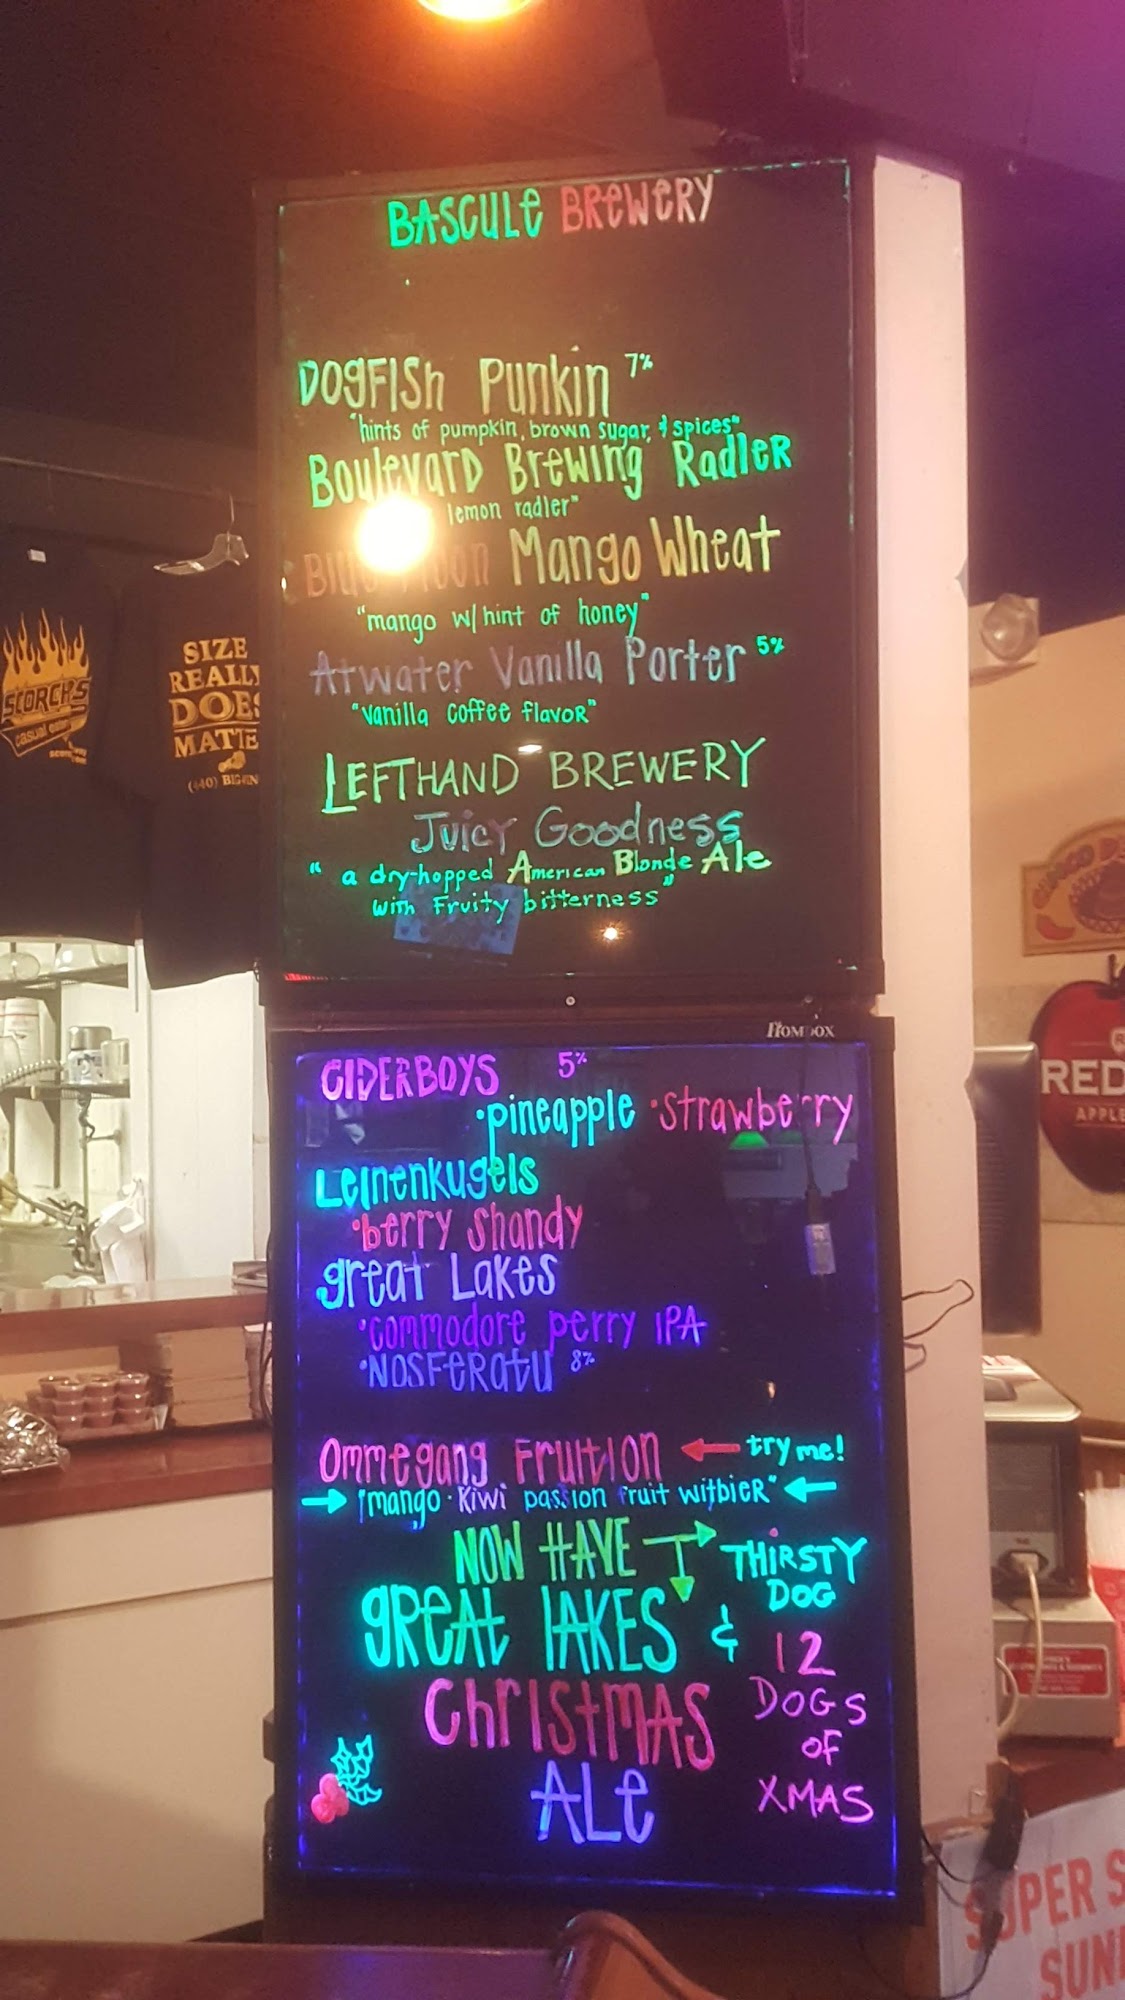 BASCULE BREWERY
DOGFISh PUNKIN 7%
"hints of pumpkin, brown sugar, & spices"
BOULEVARD BREWING RADLER
lemon radler"
Mango Wheat
"mango w/ hint of honey"
Atwater Vanilla Porter 5%
"vanilla coffee flavor"
LEFTHAND BREWERY
Juicy Goodness
" a dry-hopped American Blonde Ale
with Fruity bitterness"
HOMDOX
CIDERBOYS 5%
•pineapple •strawberry
Leinenkugels
•berry shandy
great Lakes
•commodore perry IPA
•NOSFERATU 8%
Ommegang Fruition ← try me!
→ "mango • Kiwi passion fruit witbier" ←
NOW HAVE
gREAt lAKES &
ChrIStMAS
ALe
THIRSTY
DOG
12
DOGS
OF
XMAS
SCORCH'S
casual
SIZE
REALLY
DOES
MATTE
RED
APPLE
SUPER S
SUN